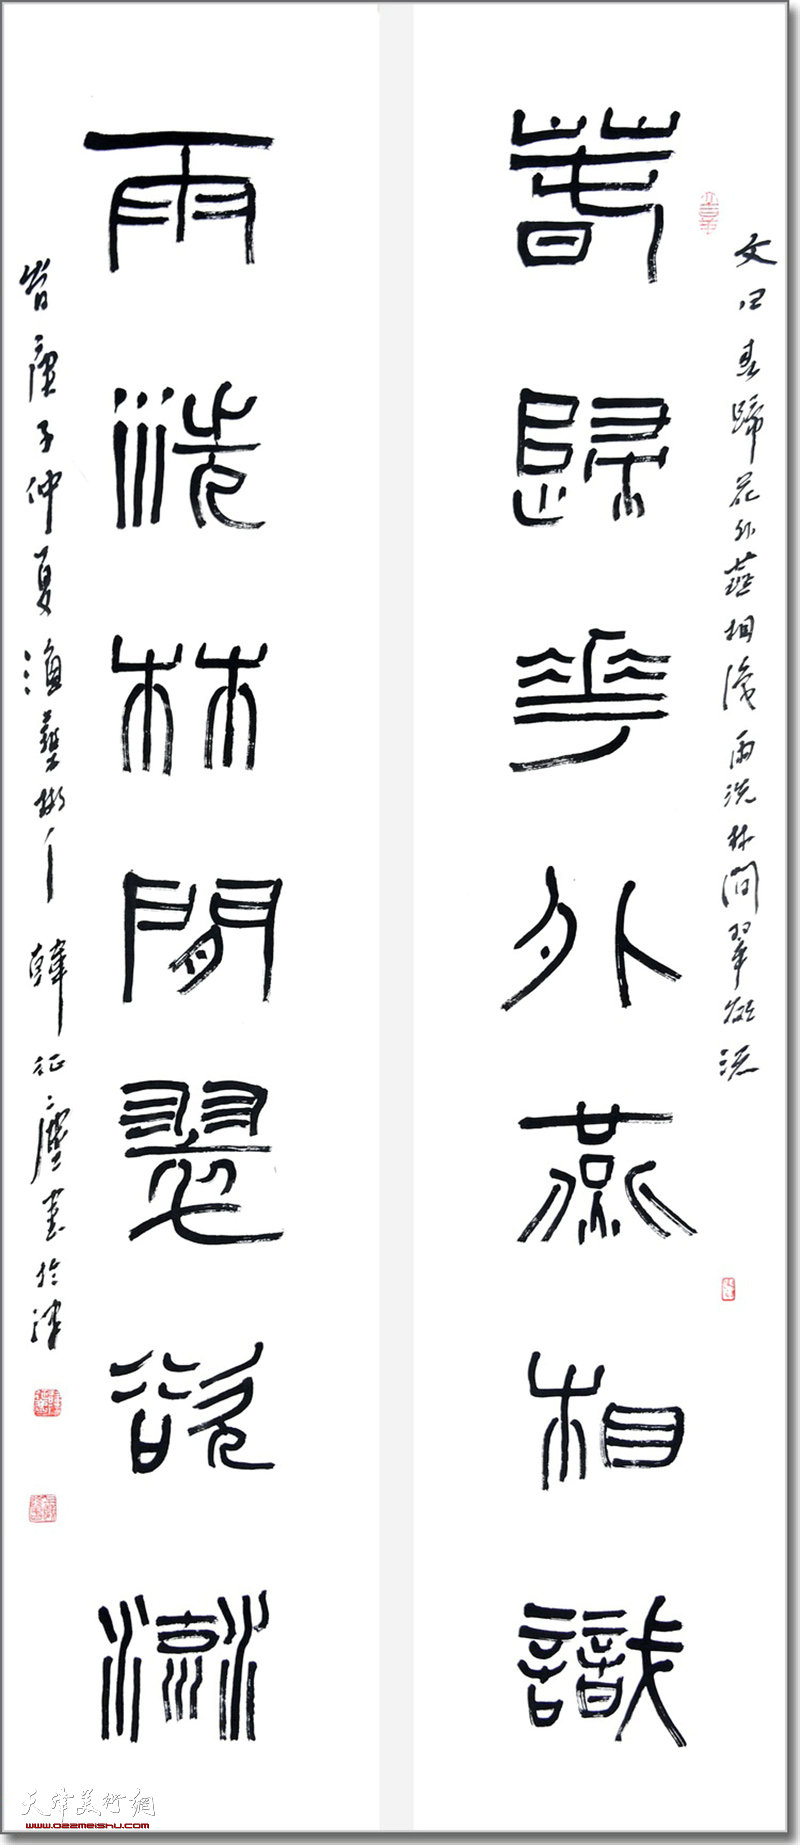 文曰春歸花外燕相識雨洗林間翠欲流
萅歸華外燕相識
雨洗林間翠欲流
岁庚子仲夏漁藝彬人韓征塵書於津
天津美術網
www.022meishu.com